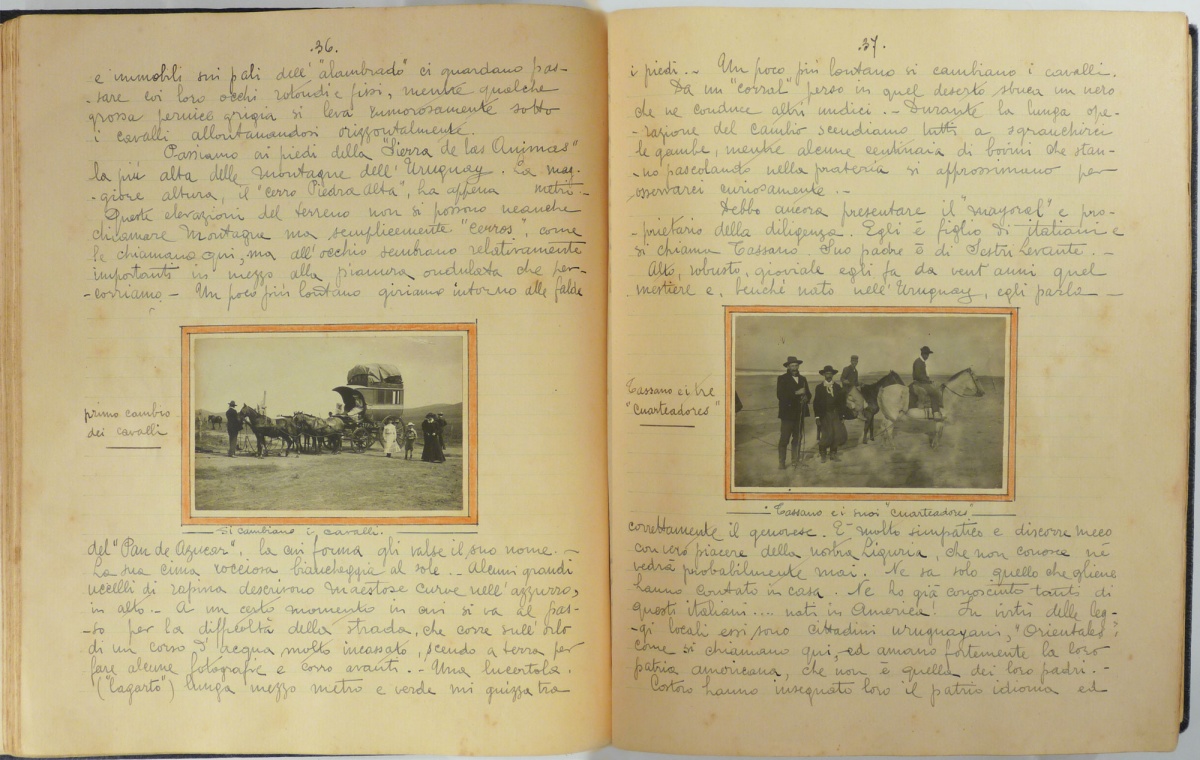 .36.
e immobili sui pali dell' "alambrado" ci guardano pas-
-sare coi loro occhi rotondi e fissi, mentre qualche
grossa pernice grigia si leva rumorosamente sotto
i cavalli allontanandosi orizzontalmente.
Passiamo ai piedi della "Sierra de las Animas"
la più alta delle montagne dell'Uruguay. La mag-
-giore altura, il "cerro Piedra Alta", ha appena metri -
Queste elevazioni del terreno non si possono neanche
chiamare montagne ma semplicemente "cerros", come
le chiamano qui, ma all'occhio sembrano relativamente
importanti in mezzo alla pianura ondulata che per-
-corriamo - Un poco più lontano giriamo intorno alle falde
primo cambio
dei cavalli
Si cambiano i cavalli.
del "Pan de Azucar", la cui forma gli valse il suo nome. -
La sua cima rocciosa biancheggia al sole. - Alcuni grandi
uccelli di rapina descrivono maestose curve nell'azzurro,
in alto. - A un certo momento in cui si va al pas-
-so per la difficoltà della strada, che corre sull'orlo
di un corso d'acqua molto incassato, scendo a terra per
fare alcune fotografie e corro avanti. - Una lucertola.
("lagarto") lunga mezzo metro e verde mi guizza tra
.37.
i piedi. - Un poco più lontano si cambiano i cavalli.
Da un "corral" perso in quel deserto sbuca un nero
che ne conduce altri undici. - Durante la lunga ope-
-razione del cambio scendiamo tutti a sgranchirci
le gambe, mentre alcune centinaia di bovini che stan-
-no pascolando nella prateria si approssimano per
osservarci curiosamente. -
Debbo ancora presentare il "mayoral" e pro-
-prietario della diligenza. Egli è figlio di italiani e
si chiama Tassano. Suo padre è di Sestri Levante. -
Alto, robusto, gioviale egli fa da vent'anni quel
mestiere e, benché nato nell'Uruguay, egli parla -
Tassano e i tre
"cuarteadores"
Tassano e i suoi "cuarteadores"
correttamente il genovese. È molto simpatico e discorre meco
con vero piacere della nostra Liguria, che non conosce nè
vedrà probabilmente mai. Ne sa solo quello che gliene
hanno contato in casa. Ne ho già conosciuto tanti di
questi italiani.... nati in America! In virtù delle leg-
-gi locali essi sono cittadini uruguayani, "Orientales",
come si chiamano qui, ed amano fortemente la loro
patria americana, che non è quella dei loro padri. -
Costoro hanno insegnato loro il patrio idioma ed